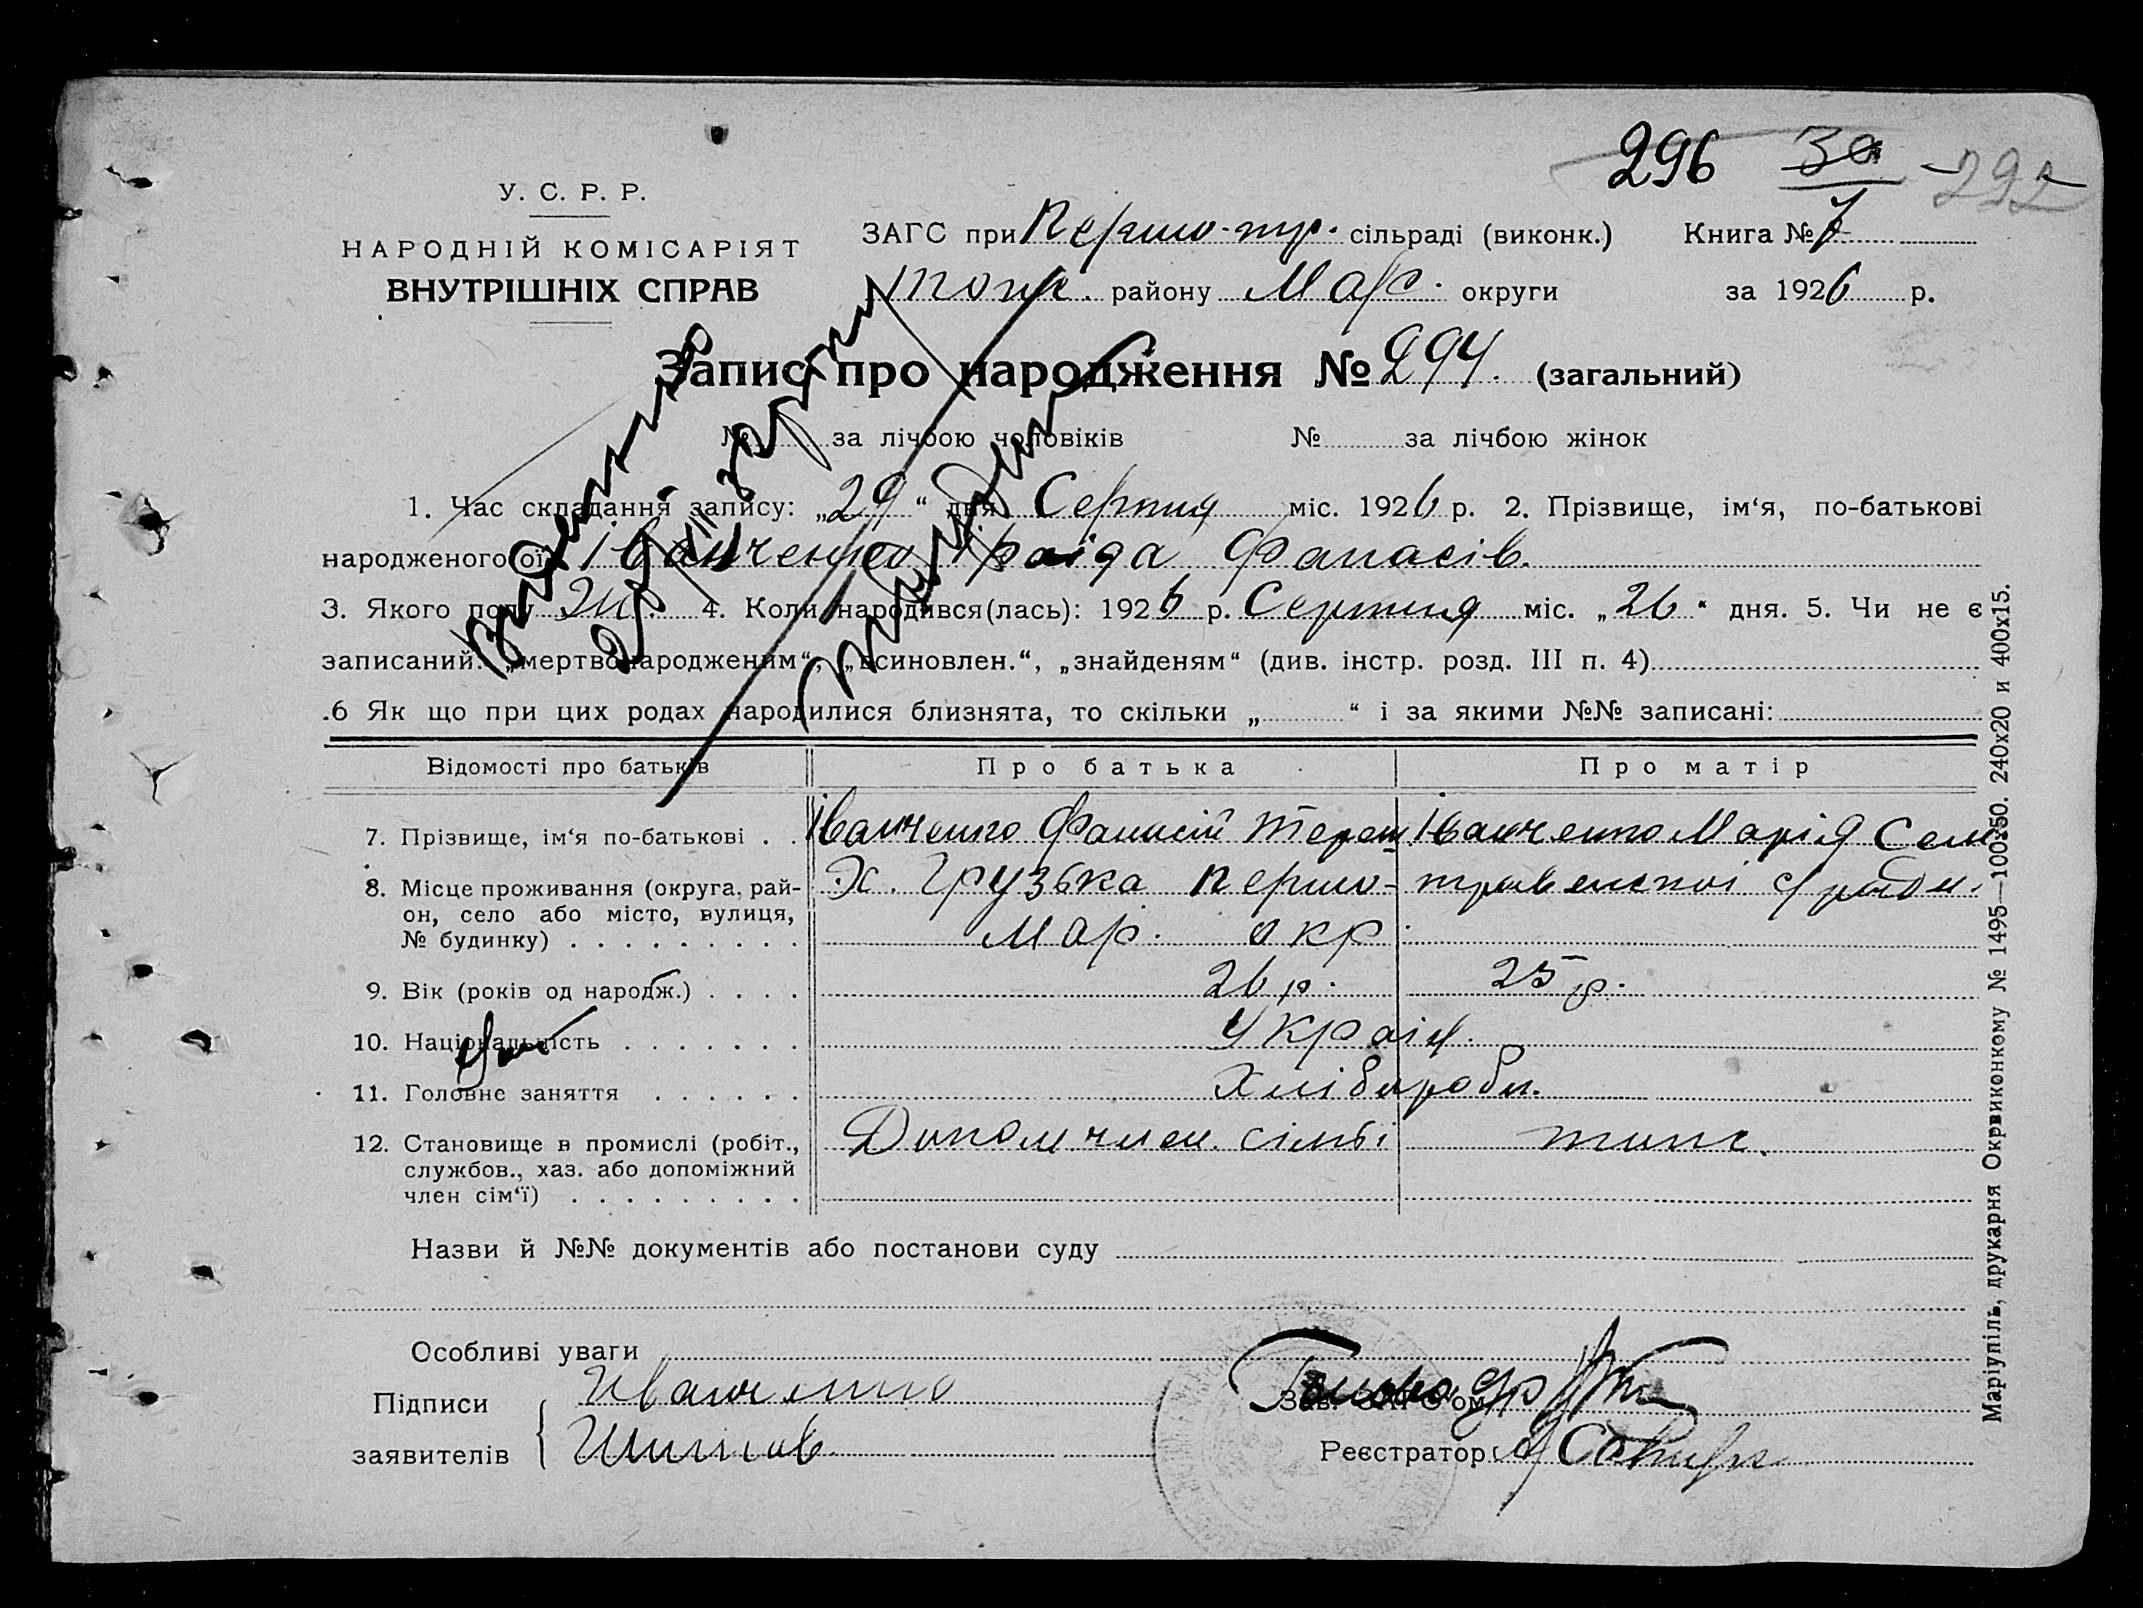 296 30 - 292
У. С. Р. Р.
НАРОДНІЙ КОМІСАРІЯТ
ВНУТРІШНІХ СПРАВ
ЗАГС при Першо-тр. сільраді (виконк.) Книга № 7
району Мар. округи за 1926 р.
Запис про народження № 294. (загальний)
№ за лічбою чоловіків № за лічбою жінок
1. Час складання запису: „29“ дня Серпня міс. 1926 р. 2. Прізвище, ім‘я, по-батькові
народженого ої Іванченко Іраіда Фанасів.
3. Якого полу Ж. 4. Коли народився(лась): 1926 р. Серпня міс. „26“ дня. 5. Чи не є
записаний: „мертвонародженим“, „всиновлен.“, „знайденям“ (див. інстр. розд. III п. 4)
.6 Як що при цих родах народилися близнята, то скільки „ “ і за якими №№ записані:
Відомості про батьків Про батька Про матір
7. Прізвище, ім‘я по-батькові . . Іванченко Фанасій Тереш Іванченко Марія Сем
8. Місце проживання (округа, рай- Х. Грузька Першо- травенскоі с/ради.
он, село або місто, вулиця,
№ будинку) . . . . . . . . . Мар. окр.
9. Вік (років од народж.) . . . . 26 р. 25 р.
10. Національність . . . . . . . Украін.
11. Головне заняття . . . . . . Хлібороби.
12. Становище в промислі (робіт., Допом член сімьі
службов., хаз. або допоміжний
член сім‘ї) . . . . . . . . .
Назви й №№ документів або постанови суду
Особливі уваги
Підписи Иванченко
Зав. ЗАГС‘ом
заявителів
Реєстратор
Маріупіль, друкарня Окрвиконкому № 1495—100х50. 240х20 и 400х15.